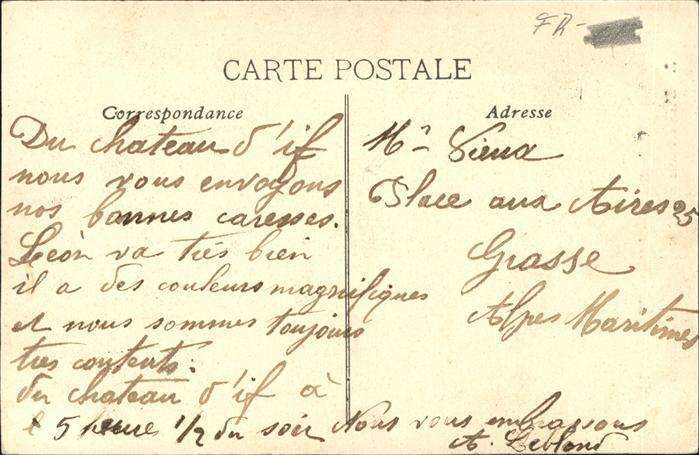 FR-
CARTE POSTALE
Correspondance
Du chateau d'if
nous vous envoyons
nos bonnes caresses.
Léon va très bien
il a des couleurs magnifiques
et nous sommes toujours
très contents.
du chateau d'if à
5 heure 1/2 du soir Nous vous embrassons
A. Leblond
Adresse
Mr Vieux
Place aux Aires 25
Grasse
Alpes Maritimes